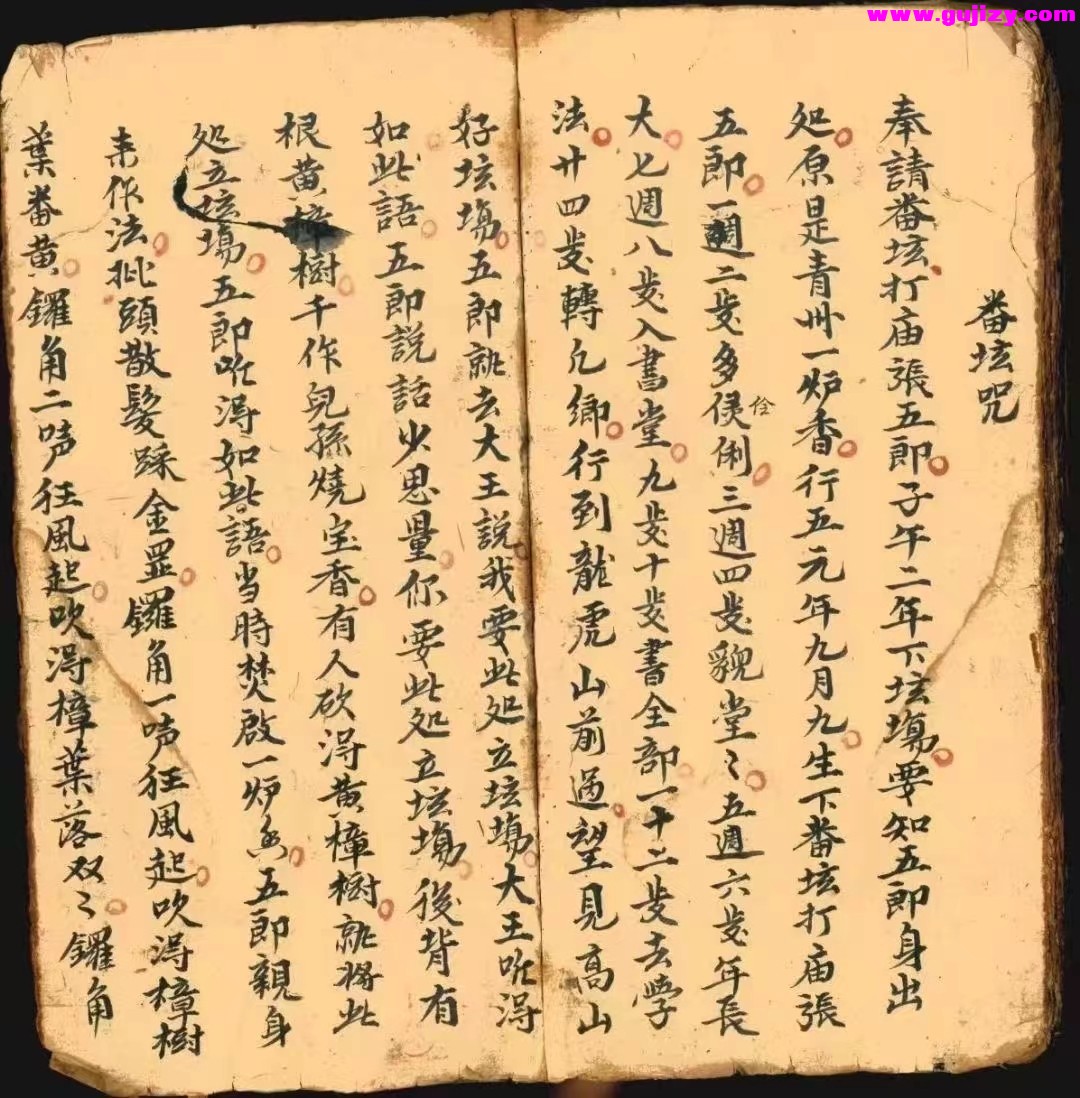 www.gujizy.com
番坛咒
奉請番坛打庙張五郎子午二年下坛塲要知五郎身出
処原是青州一炉香行五元年九月九生下番坛打庙張
五郎一週二歩多伶俐三週四歩貌堂〻五週六歩年長
大七週八歩入書堂九歩十歩書全部一十二歩去學
法廾四歩轉凡鄉行到龍虎山前過望見高山
好坛塲五郎就去大王説我要此处立坛塲大王听淂
如此語五郎説話少思量你要此处立坛塲後背有
根黄樟樹千作兒孫燒宝香有人砍淂黄樟樹就將此
処立坛塲五郎听淂如此語当時焚啟一炉香五郎親身
来作法批頭散髮踩金罡鑼角一声狂風起吹淂樟樹
葉番黄鑼角二声狂風起吹淂樟葉落双〻鑼角